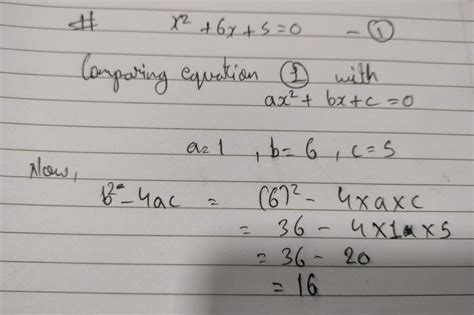 # x² + 6x + 5 = 0 — ①
Comparing equation ① with
ax² + bx + c = 0
a = 1 , b = 6 , c = 5
Now,
b² - 4ac = (6)² - 4 × a × c
= 36 - 4 × 1 × 5
= 36 - 20
= 16